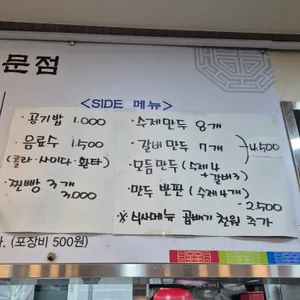 문점
<SIDE 메뉴>
·공기밥 1.000
·음료수 1.500
(콜라·사이다·환타)
·찐빵 3개
3.000
·수제만두 8개
·갈비만두 7개
4.500
·모듬만두 (수제4
+갈비3)
·만두 반판 (수제4개)
-2.500
※ 식사메뉴 곱빼기 천원 추가
(포장비 500원)